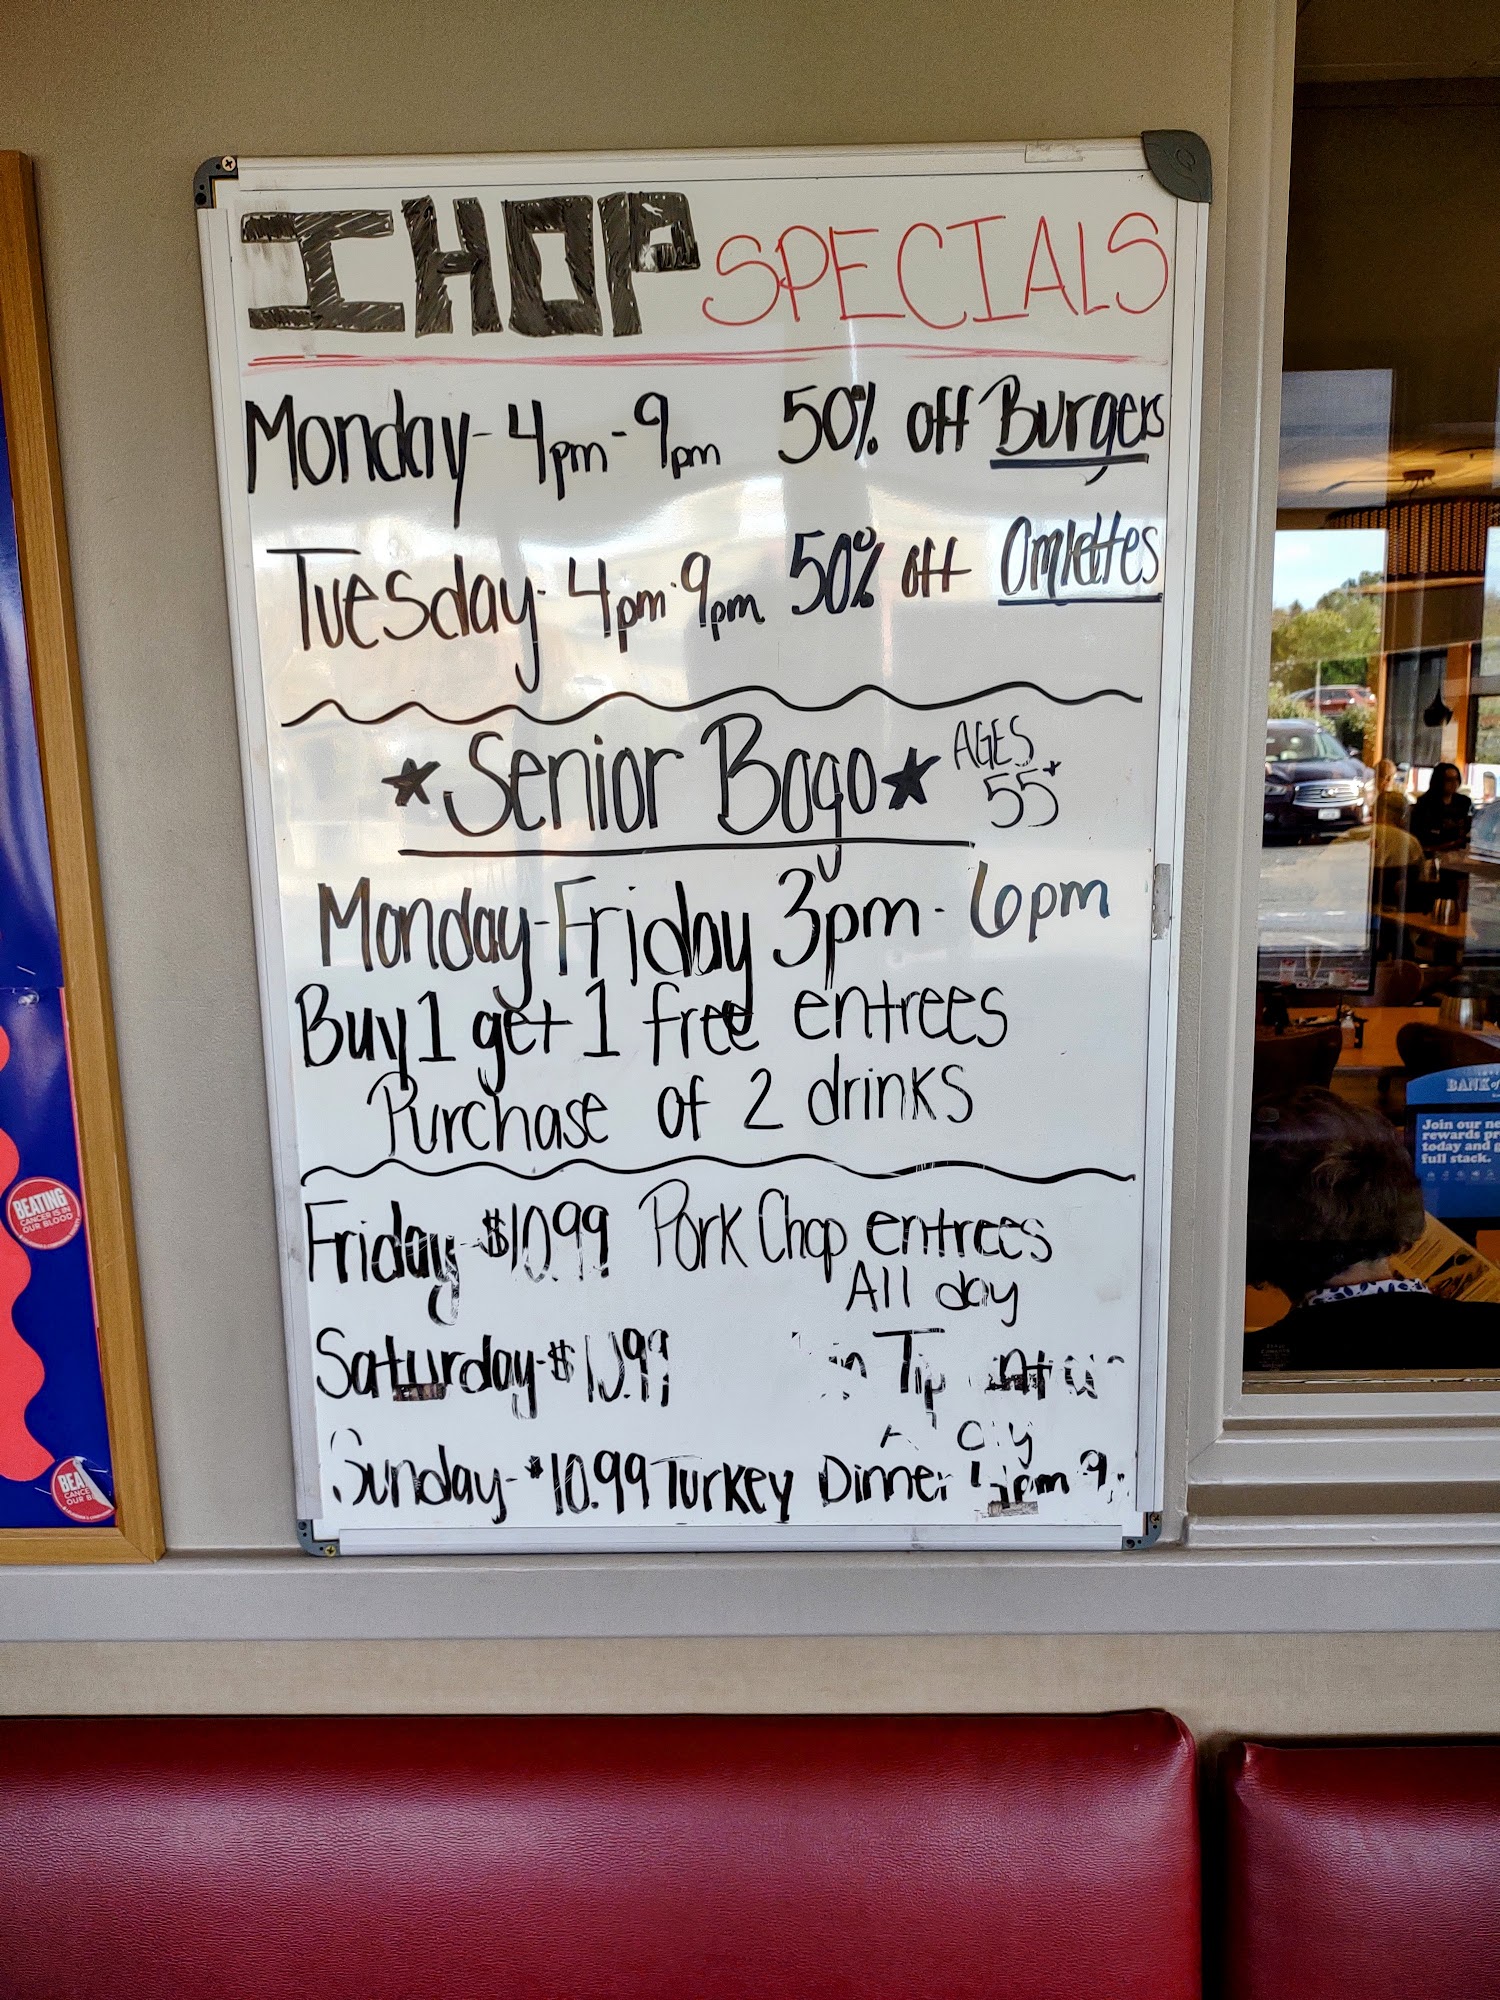 IHOP SPECIALS
Monday- 4pm-9pm 50% off Burgers
Tuesday- 4pm-9pm 50% off Omlettes
★Senior Bogo★ AGES 55+
Monday-Friday 3pm-6pm
Buy 1 get 1 free entrees
Purchase of 2 drinks
Friday-$10.99 Pork Chop entrees
All day
Saturday-$ Tip
Sunday-$10.99 Turkey Dinner
BEATING
CANCER IS IN
OUR BLOOD
BEA
CANCE
OUR B
BANK of
Join our ne
rewards pr
today and g
full stack.